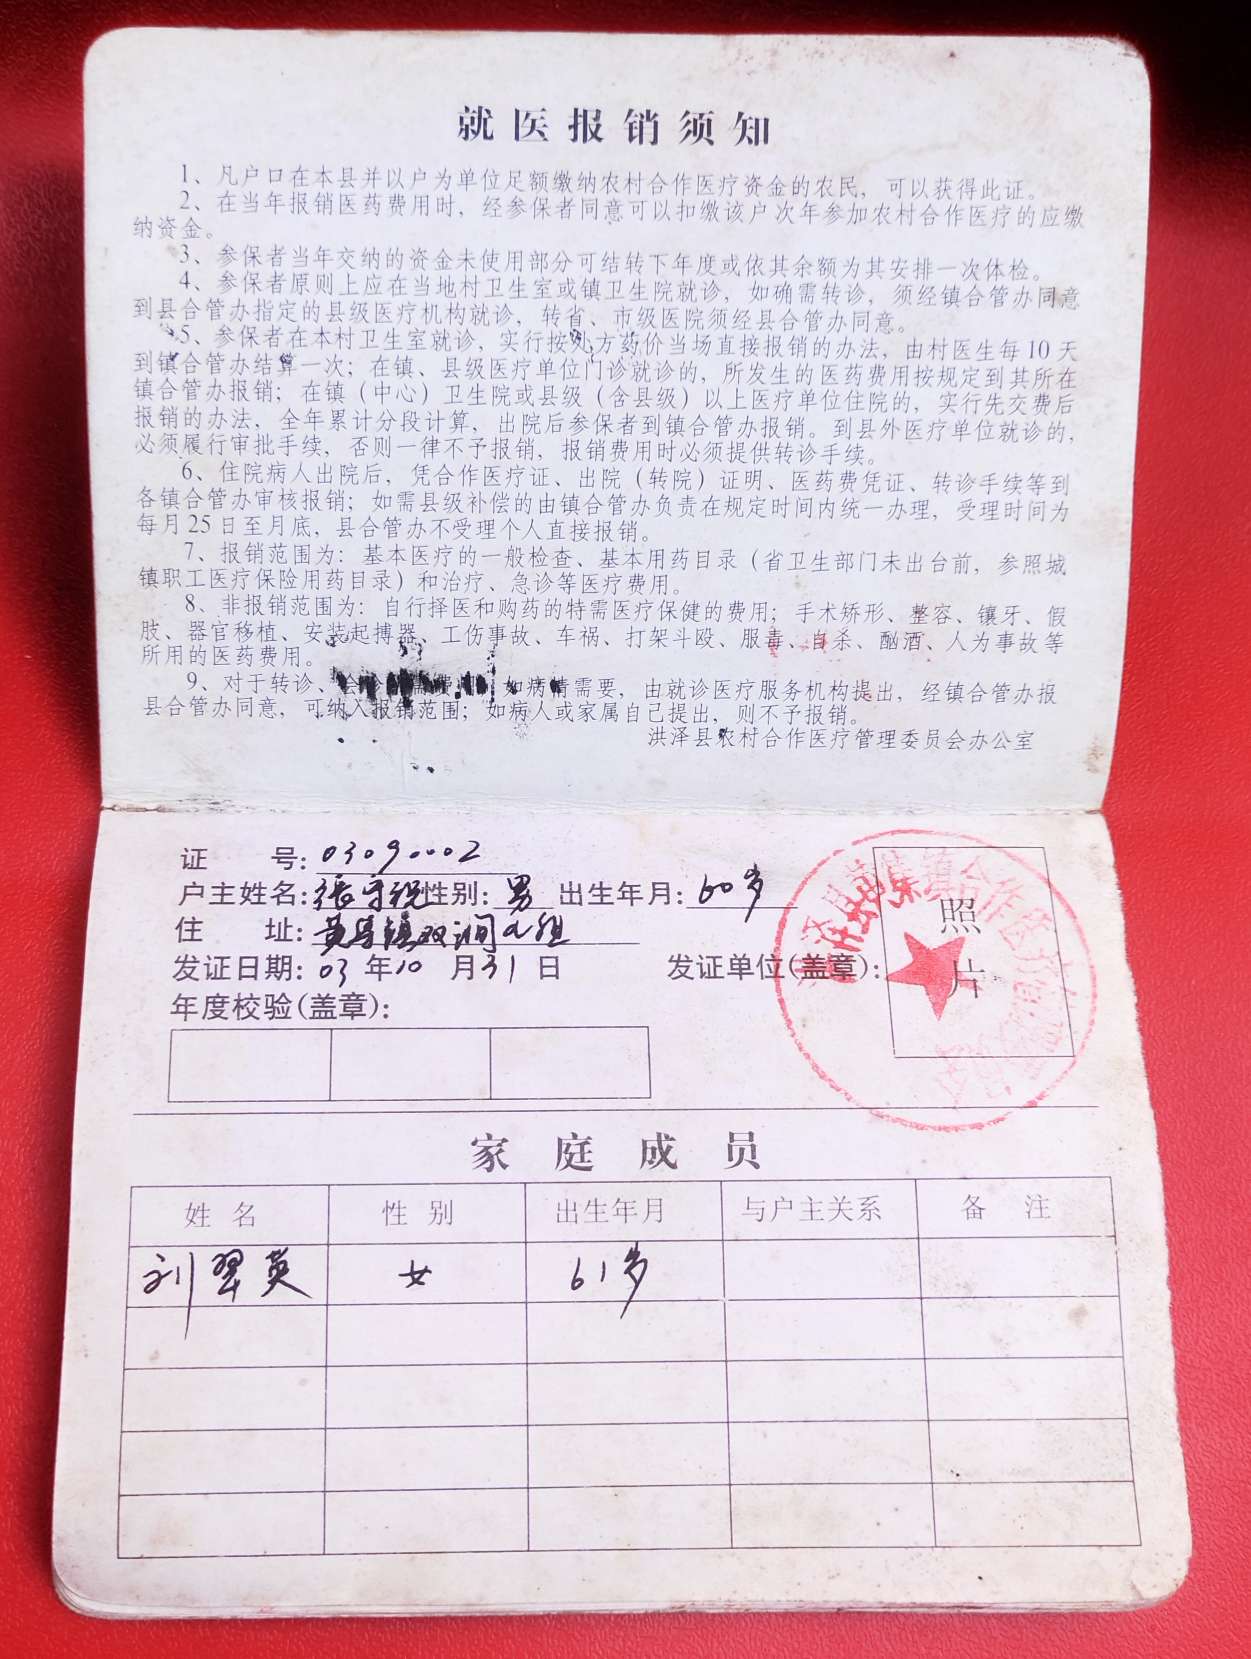 就医报销须知
1、凡户口在本县并以户为单位足额缴纳农村合作医疗资金的农民，可以获得此证。
2、在当年报销医药费用时，经参保者同意可以扣缴该户次年参加农村合作医疗的应缴
纳资金。
3、参保者当年交纳的资金未使用部分可结转下年度或依其余额为其安排一次体检。
4、参保者原则上应在当地村卫生室或镇卫生院就诊，如确需转诊，须经镇合管办同意
到县合管办指定的县级医疗机构就诊，转省、市级医院须经县合管办同意。
5、参保者在本村卫生室就诊，实行按处方药价当场直接报销的办法，由村医生每10天
到镇合管办结算一次；在镇、县级医疗单位门诊就诊的，所发生的医药费用按规定到其所在
镇合管办报销；在镇（中心）卫生院或县级（含县级）以上医疗单位住院的，实行先交费后
报销的办法，全年累计分段计算，出院后参保者到镇合管办报销。到县外医疗单位就诊的，
必须履行审批手续，否则一律不予报销，报销费用时必须提供转诊手续。
6、住院病人出院后，凭合作医疗证、出院（转院）证明、医药费凭证、转诊手续等到
各镇合管办审核报销；如需县级补偿的由镇合管办负责在规定时间内统一办理，受理时间为
每月25日至月底，县合管办不受理个人直接报销。
7、报销范围为：基本医疗的一般检查、基本用药目录（省卫生部门未出台前，参照城
镇职工医疗保险用药目录）和治疗、急诊等医疗费用。
8、非报销范围为：自行择医和购药的特需医疗保健的费用；手术矫形、整容、镶牙、假
肢、器官移植、安装起搏器、工伤事故、车祸、打架斗殴、服毒、自杀、酗酒、人为事故等
所用的医药费用。
9、对于转诊、会诊 需费用，如病情需要，由就诊医疗服务机构提出，经镇合管办报
县合管办同意，可纳入报销范围；如病人或家属自己提出，则不予报销。
洪泽县农村合作医疗管理委员会办公室
证 号：03090002
户主姓名：张守 性别：男 出生年月：60岁
住 址：黄集镇双涧 组
发证日期：03年10月31日 发证单位(盖章)：
照片
年度校验(盖章)：
家庭成员
姓名 性别 出生年月 与户主关系 备注
刘翠英 女 61岁